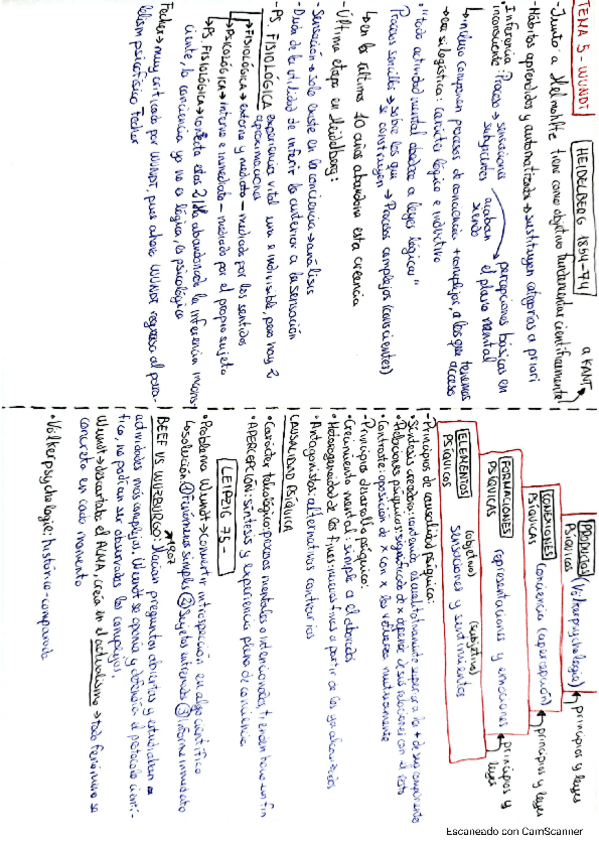 TEMA 5 - WUNDT
HEIDELBERG 1864-74
a KANT
- Junto a Helmholtz tiene como objetivo fundamentar científicamente
- Hábitos aprendidos y automatizados → sustituyen categorías a priori
Inferencia inconsciente: Proceso → sensaciones subyacentes acaban siendo percepciones básicas en el plano mental
↳ mismo componen procesos de conciencia + complejos, a los que tenemos acceso
→ era silogística: carácter lógico e inductivo
"toda actividad mental obedece a leyes lógicas"
Procesos sencillos → sobre los que se construyen → Procesos complejos (conscientes)
↳ en los últimos 10 años abandona esta creencia
- Última etapa en Heidelberg:
- Sensación → solo existe en la conciencia → análisis
- Duda de la utilidad de inferir lo anterior a la sensación
- PS. FISIOLÓGICA experiencia vital una e indivisible, pero hay 2 aproximaciones
↳ FISIOLÓGICA → externa y mediata - mediada por los sentidos
↳ PSICOLÓGICA → interna e inmediata - mediada por el propio sujeto
↳ PS. FISIOLÓGICA → conecta estas 2. Ha abandonado la inferencia incons-
ciente, la conciencia ya no es lógica, es psicológica
Fechner → muy criticado por WUNDT, pues ahora Wundt regresa al para-
lelismo psicofísico Fechner
PRODUCTOS PSÍQUICOS (Völkerpsychologie) → principios y leyes
CONEXIONES PSÍQUICAS conciencia (apercepción) → principios y leyes
FORMACIONES PSÍQUICAS representaciones y emociones → principios y leyes
ELEMENTOS PSÍQUICOS (objetivo) (subjetivo)
sensaciones y sentimientos
- Principios de causalidad psíquica:
• Síntesis creadora: contenido cualitativamente superior a la + de sus componentes
• Relaciones psíquicas: significado de x depende de sus relaciones con el resto
• Contraste: oposición de x con x los refuerza mutuamente
- Principios desarrollo psíquico:
• Crecimiento mental: simple a elaborado
• Heterogeneidad de los Fines: nuevos fines a partir de los ya alcanzados
• Antagonistas: alternativas contrarias
CAUSALIDAD PSÍQUICA
• Carácter teleológico: procesos mentales e intencionados, tienden hacia un fin
• APERCEPCIÓN: síntesis y experiencia plena de conciencia
LEIPZIG 75 -
• Problema Wundt → convertir introspección en algo científico
↳ solución: ① Fenómenos simples ② Sujetos entrenados ③ Informe inmediato
1907
BEEF VS WÜRZBURGO: Hacían preguntas abiertas y estudiaban
actividades más complejas, Wundt se oponía y defendía el protocolo cientí-
fico, no podían ser observados los complejos.
Wundt → descartaba el ALMA, creía en el actualismo → todo fenómeno se
concreta en cada momento
• Völkerpsychologie: histórico-comparada
Escaneado con CamScanner